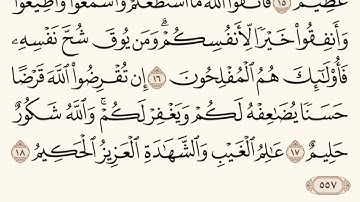 عَظِيمٌ ١٥ فَاتَّقُوا اللَّهَ مَا اسْتَطَعْتُمْ وَاسْمَعُوا وَأَطِيعُوا
وَأَنفِقُوا خَيْرًا لِّأَنفُسِكُمْ ۗ وَمَن يُوقَ شُحَّ نَفْسِهِ
فَأُولَٰئِكَ هُمُ الْمُفْلِحُونَ ١٦ إِن تُقْرِضُوا اللَّهَ قَرْضًا
حَسَنًا يُضَاعِفْهُ لَكُمْ وَيَغْفِرْ لَكُمْ ۚ وَاللَّهُ شَكُورٌ
حَلِيمٌ ١٧ عَالِمُ الْغَيْبِ وَالشَّهَادَةِ الْعَزِيزُ الْحَكِيمُ ١٨
٥٥٧